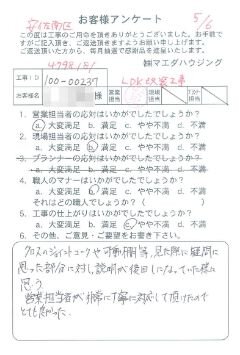 安佐南区
お客様アンケート
5/6
この度は工事のご用命を頂きありがとうございました。お手数で
すがご記入頂き、ご返送頂きますようお願い申し上げます。
ご返送頂いた方から、毎月抽選で感謝品を進呈いたします。
㈱マエダハウジング
工事ID
00-00237
LDK改装工事
お客様名
様
営業担当
現場担当
1. 営業担当者の応対はいかがでしたでしょうか?
a. 大変満足 b. 満足 c. やや不満 d. 不満
2. 現場担当者の応対はいかがでしたでしょうか?
a. 大変満足 b. 満足 c. やや不満 d. 不満
3. プランナーの応対はいかがでしたでしょうか?
a. 大変満足 b. 満足 c. やや不満 d. 不満
4. 職人のマナーはいかがでしたでしょうか?
a. 大変満足 b. 満足 c. やや不満 d. 不満
それはどの職人でしょうか?(
)
5. 工事の仕上がりはいかがでしたでしょうか?
a. 大変満足 b. 満足 c. やや不満 d. 不満
6. その他、ご意見・ご要望をお書き下さい。
クロスのジョイントコークや
等、見た際に疑問に
思った部分に対し、説明が後日になっていた様に
思う。
営業担当者が非常に丁寧に対応して頂けたので
とても良かった。